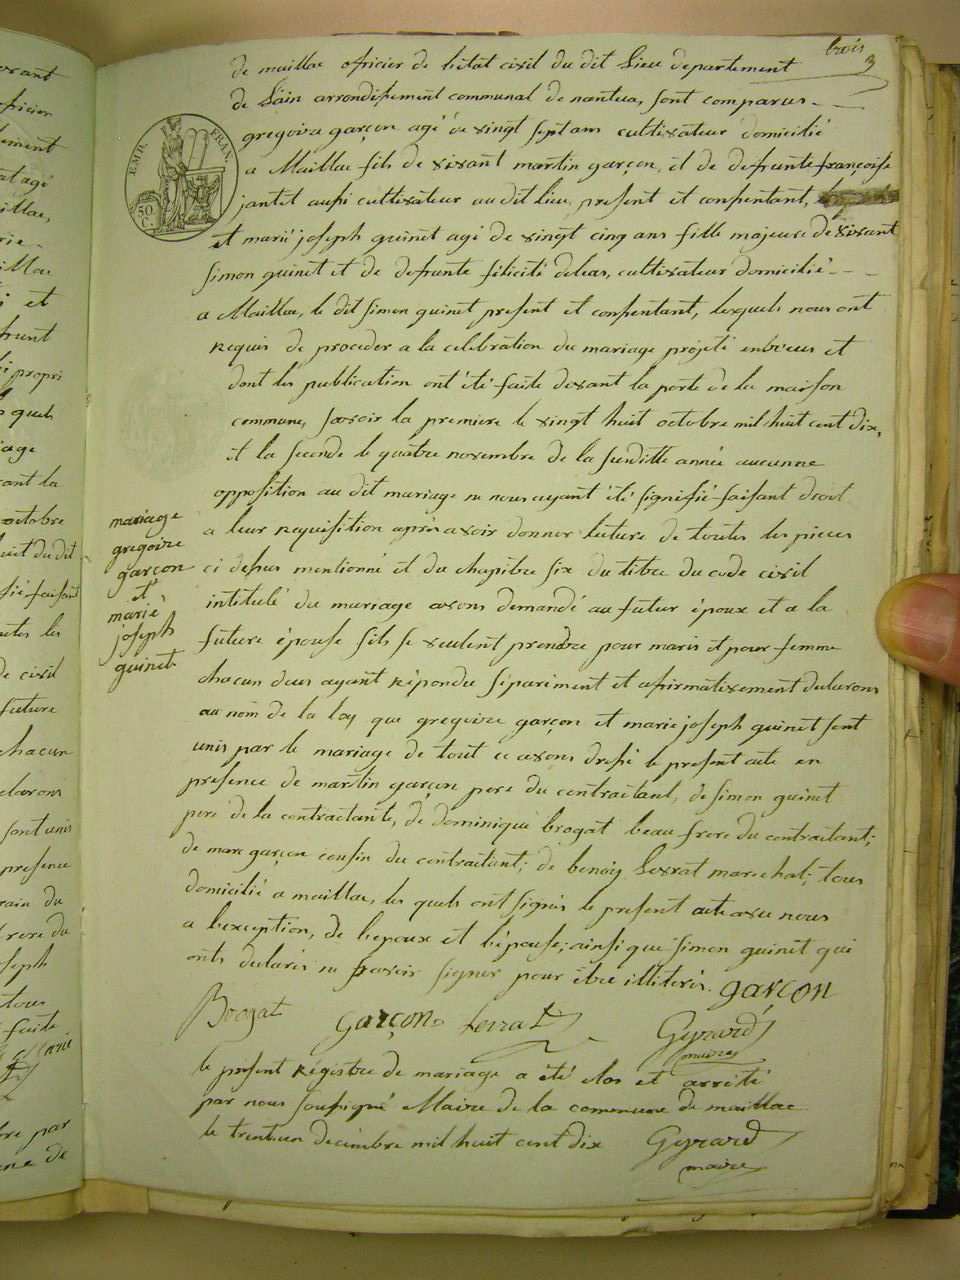 trois
3
de maillac officier de l'etat civil du dit Lieu departement
de Lain arrondissement communal de nantua, sont comparus
gregoire garçon agé de vingt sept ans cultivateur domicilié
a Maillac fils de vivant martin garçon, et de defrunte françoise
jantet aussi cultivateur au dit lieu, present et consentant,
et marie joseph guinet agé de vingt cinq ans fille majeure de vivant
simon guinet et de defrunte félicité deleas, cultivateur domicilié
a Maillac, le dit simon guinet present et consentant, lesquels nous ont
requis de proceder a la celebration du mariage projeté entr'eux et
dont les publication ont été faite devant la porte de la maison
commune, savoir la premiere le vingt huit octobre mil huit cent dix,
et la seconde le quatre novembre de la susditte année aucunne
opposition au dit mariage ne nous ayant été signifié faisant droit
a leur requisition après avoir donner lecture de toutes les pieces
ci dessus mentionné et du chapitre six du titre du code civil
intitulé du mariage avons demandé au futur époux et a la
future épouse sils se veulent prendre pour maris et pour femme
chacun deus ayant répondu séparément et afirmativement declarons
au nom de la loy que gregoire garçon et marie joseph guinet sont
unis par le mariage de tout ce avons dressé le present acte en
présence de martin garçon pere du contractant, de simon guinet
pere de la contractante, de dominique brogat beau-frere du contractant;
de marc garçon cousin du contractant; de benoit Levrat marechal; tous
domicilié a maillac, les quels ont signés le present acte avec nous
a l'exception, de l'epoux et l'épouse; ainsi que simon guinet qui
onts declarés ne savoir signer pour être illiterés. garcon
Brogat garçon Levrat Geyrard
maire
le present Registre de mariage a été clos et arrêté
par nous soussigné Maire de la commune de maillac
le trente un decembre mil huit cent dix Geyrard
maire
mariage
gregoire
garçon
et
marie
joseph
guinet
EMP. FRAN.
50
C.